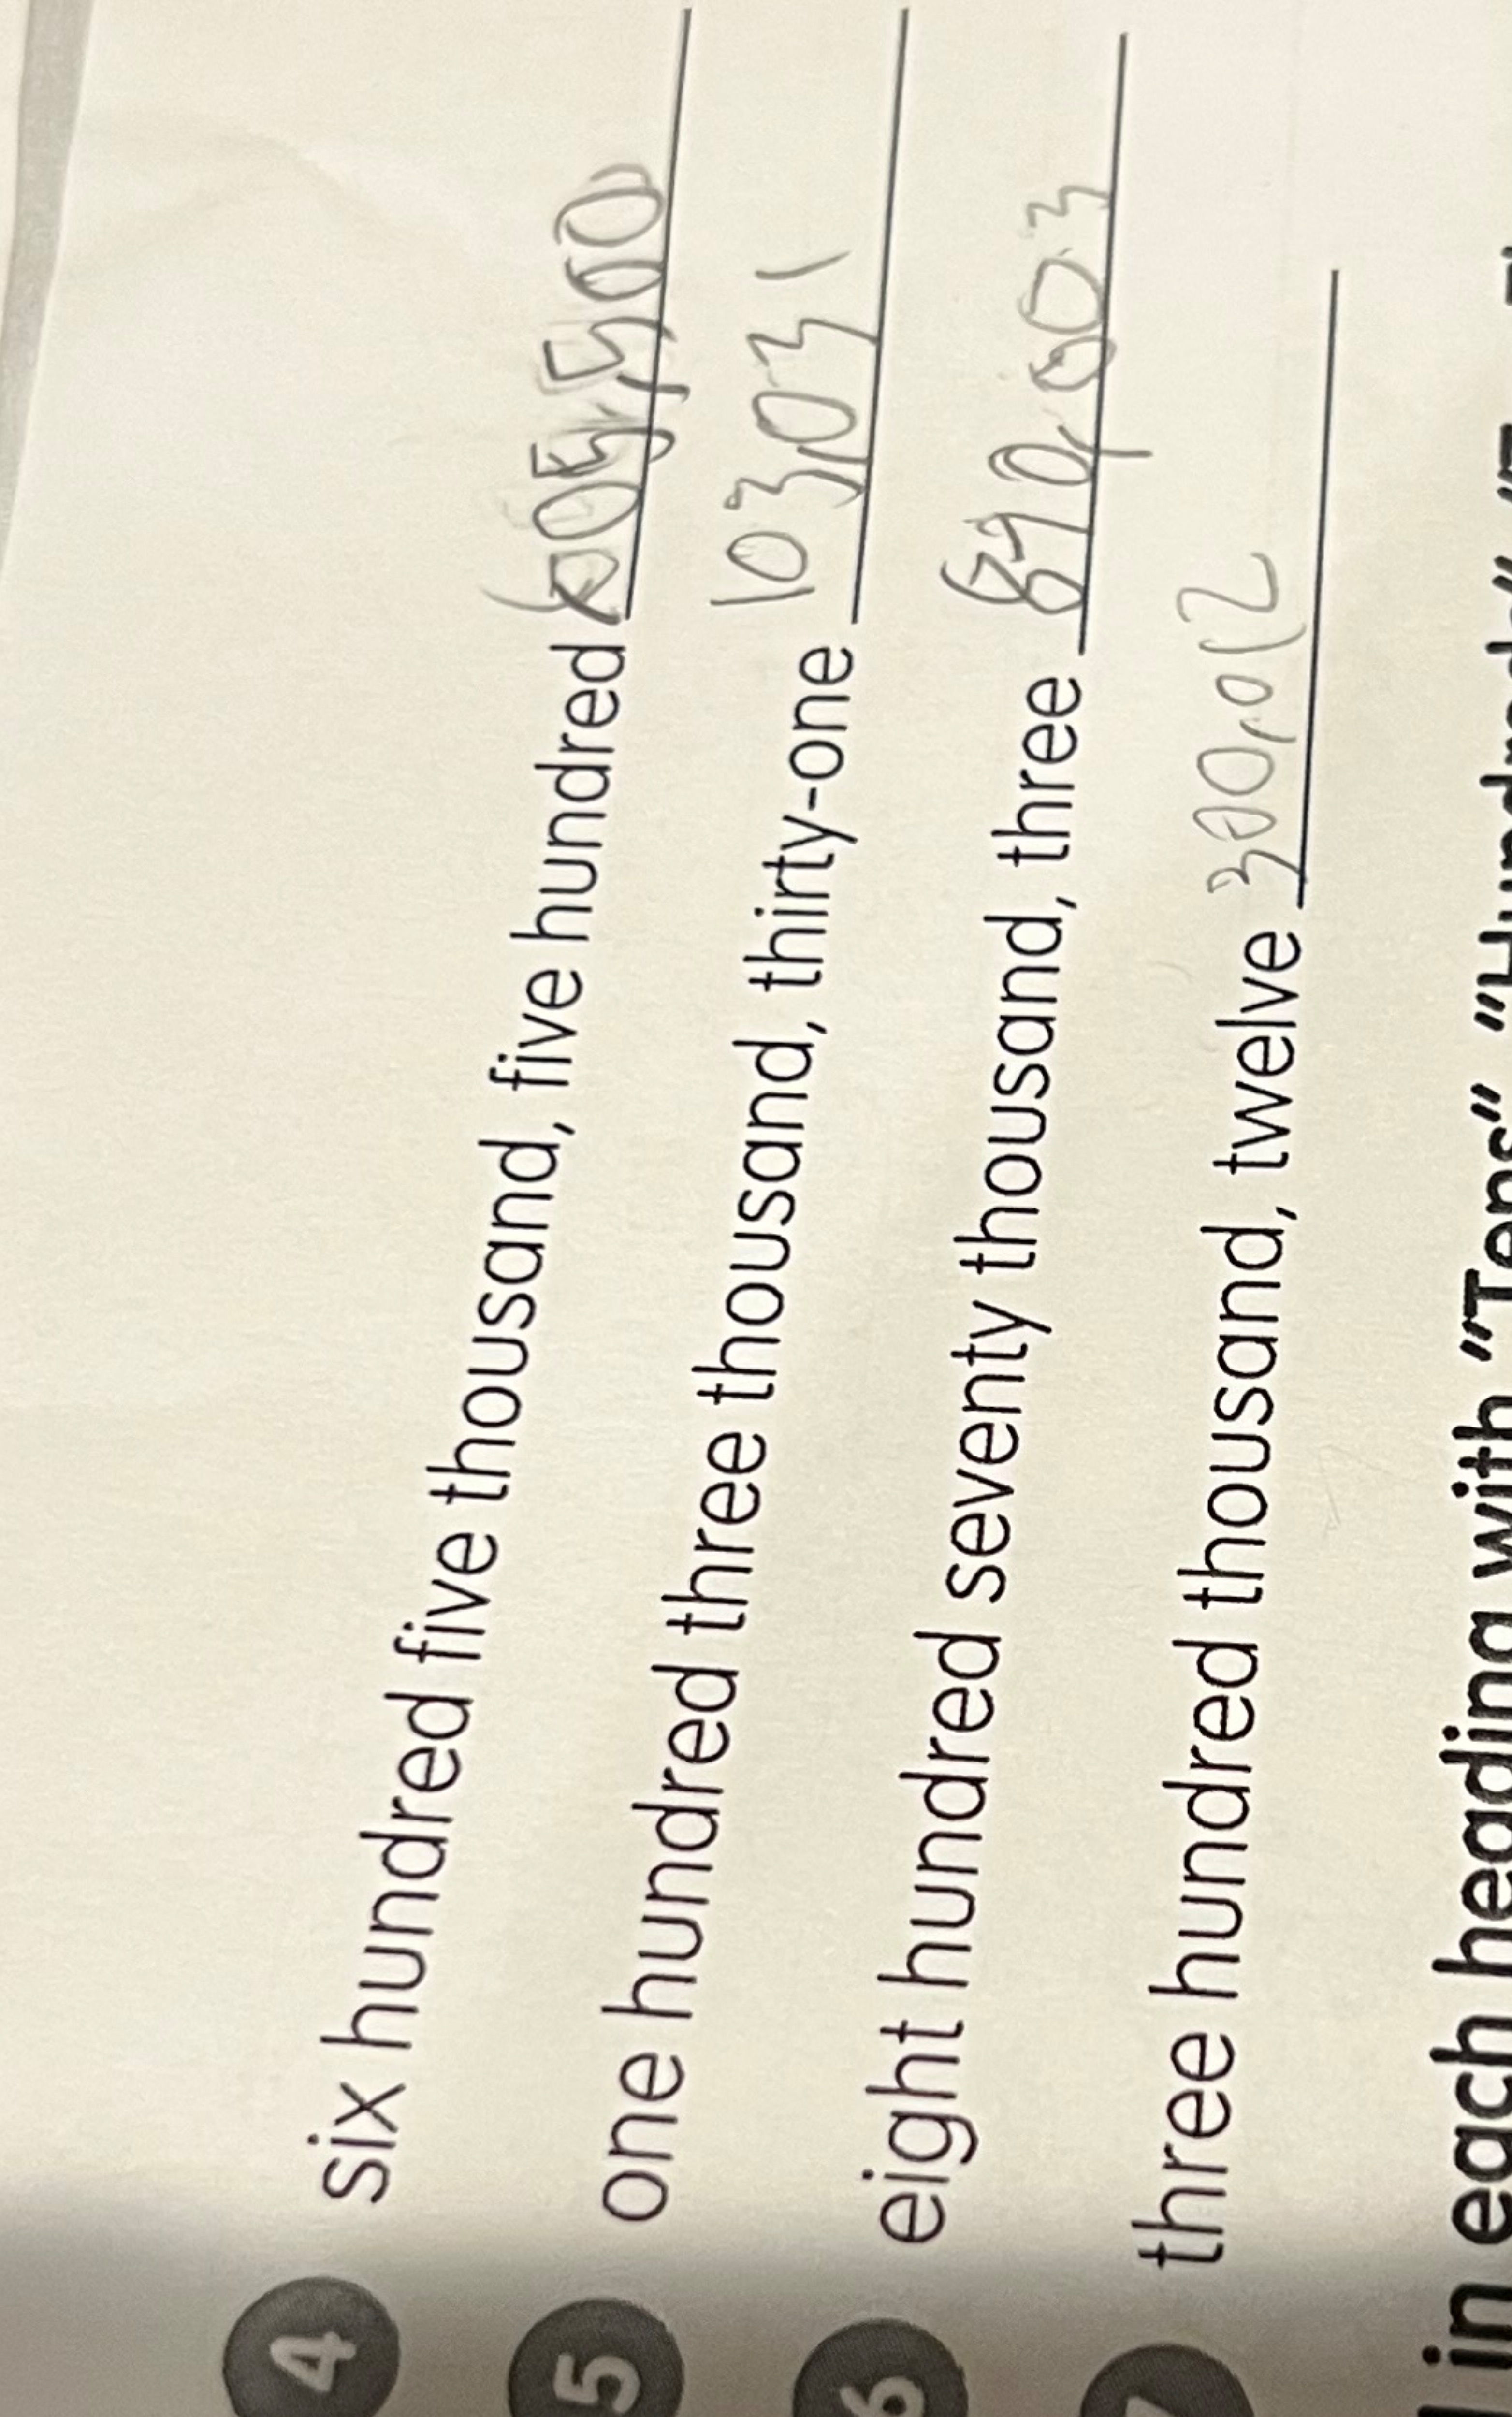 4 six hundred five thousand, five hundred 605,500
5 one hundred three thousand, thirty-one 103,031
6 eight hundred seventy thousand, three 870,003
7 three hundred thousand, twelve 300,012
in each heading with "Tens" "Hundreds"